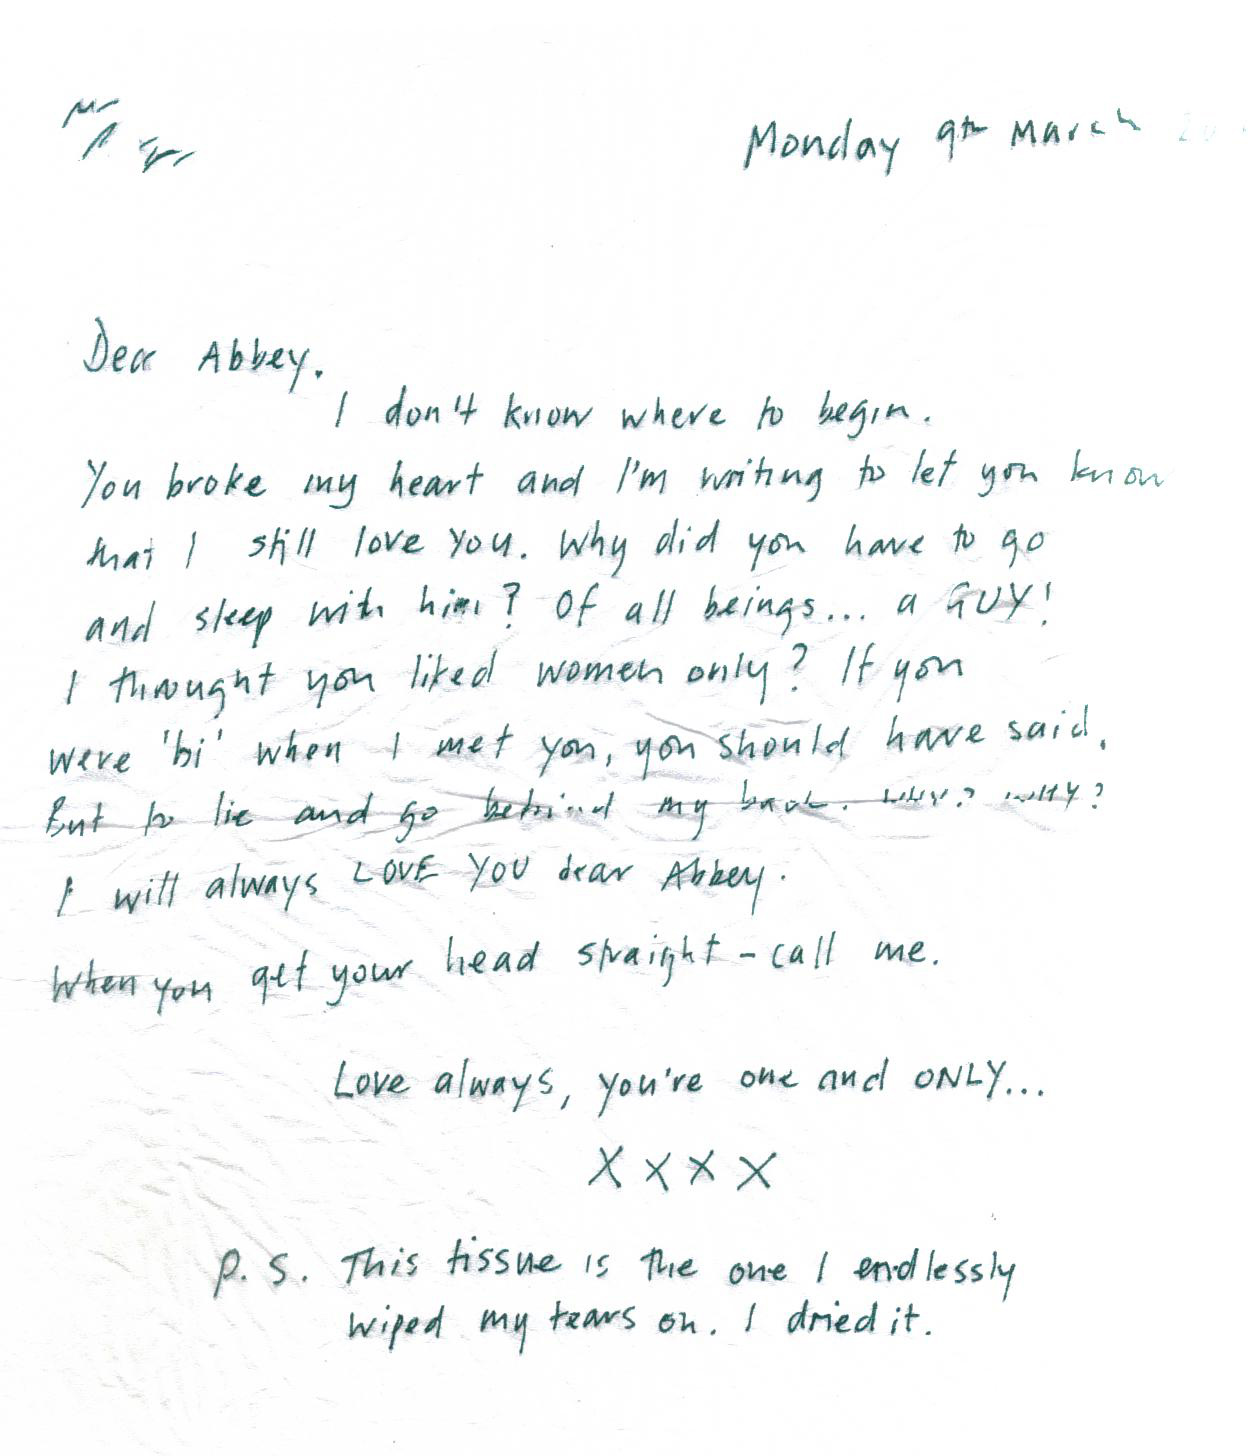 Monday 9th March 20
Dear Abbey.
I don't know where to begin.
You broke my heart and I'm writing to let you know
that I still love you. Why did you have to go
and sleep with him? Of all beings... a GUY!
I throught you liked women only? If you
were 'bi' when I met you, you should have said.
But to lie and go behind my back. WHY? WHY?
I will always LOVE YOU dear Abbey.
When you get your head straight - call me.
Love always, you're one and ONLY...
X X X X
P.S. This tissue is the one I endlessly
wiped my tears on. I dried it.